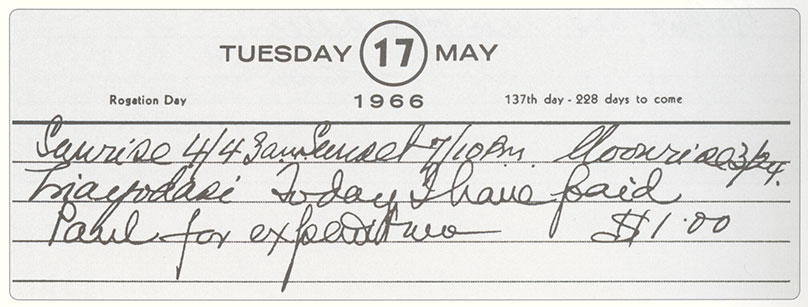 TUESDAY 17 MAY
Rogation Day 1966 137th day - 228 days to come
Sunrise 4/43am Sunset 7/10 P.m. Moonrise 3/24.
Triayodasi Today I have paid
Paul for expenditure $1.00